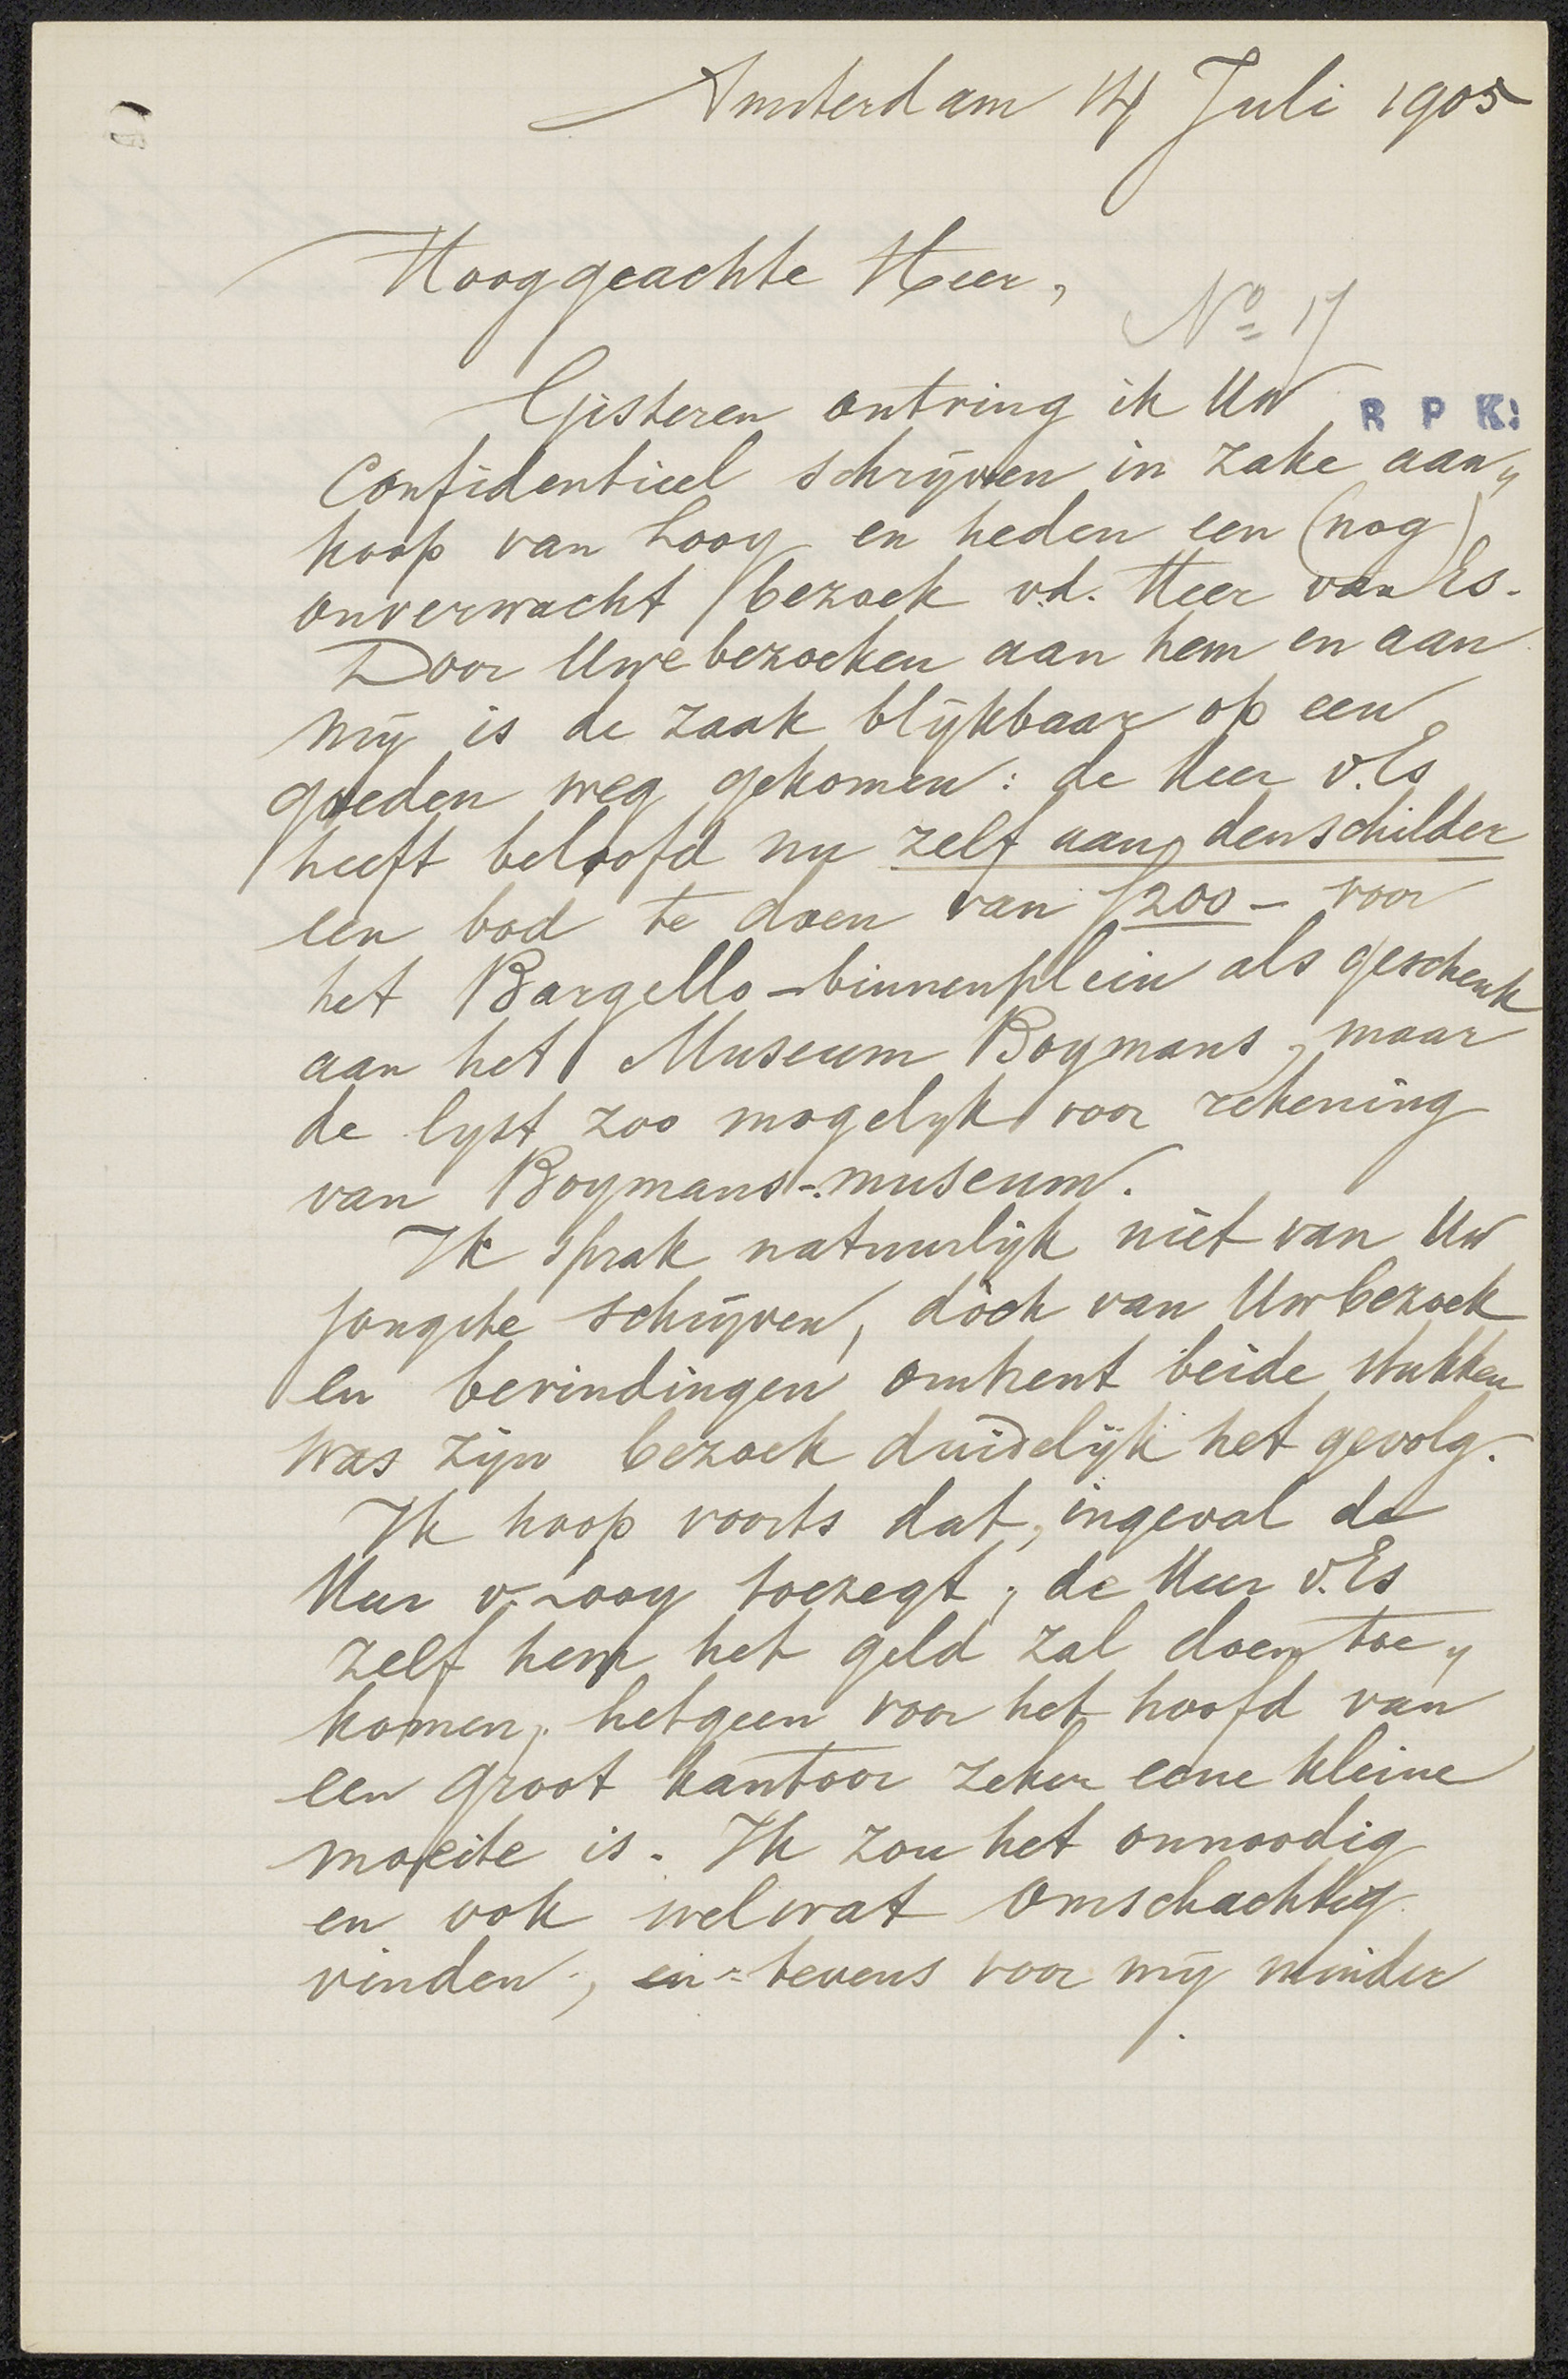 Amsterdam 14 Juli 1905
Hooggeachte Heer,
No 17
Gisteren ontving ik Uw
R P K:
Confidentieel schrijven in zake aan„
koop van Looy en heden een (nog)
onverwacht bezoek v.d. Heer van Es.
Door Uwe bezoeken aan hem en aan
mij is de zaak blijkbaar op een
goeden weg gekomen: de heer v. Es
heeft beloofd nu zelf aan den schilder
een bod te doen van f200 - voor
het Bargello-binnenplein als geschenk
aan het Museum Boymans, maar
de lyst zoo mogelyk voor rekening
van Boymans-museum.
Ik sprak natuurlijk niet van Uw
jongste schrijven, doch van Uw bezoek
en bevindingen omtrent beide stukken
was zijn bezoek duidelijk het gevolg.
Ik hoop voorts dat, ingeval de
Heer v. Looy toezegt, de Heer v. Es
zelf hem het geld zal doen toe„
komen, hetgeen voor het hoofd van
een groot kantoor zeker eene kleine
moeite is. Ik zou het onnoodig
en ook wel wat omschachtig
vinden, en tevens voor mij minder